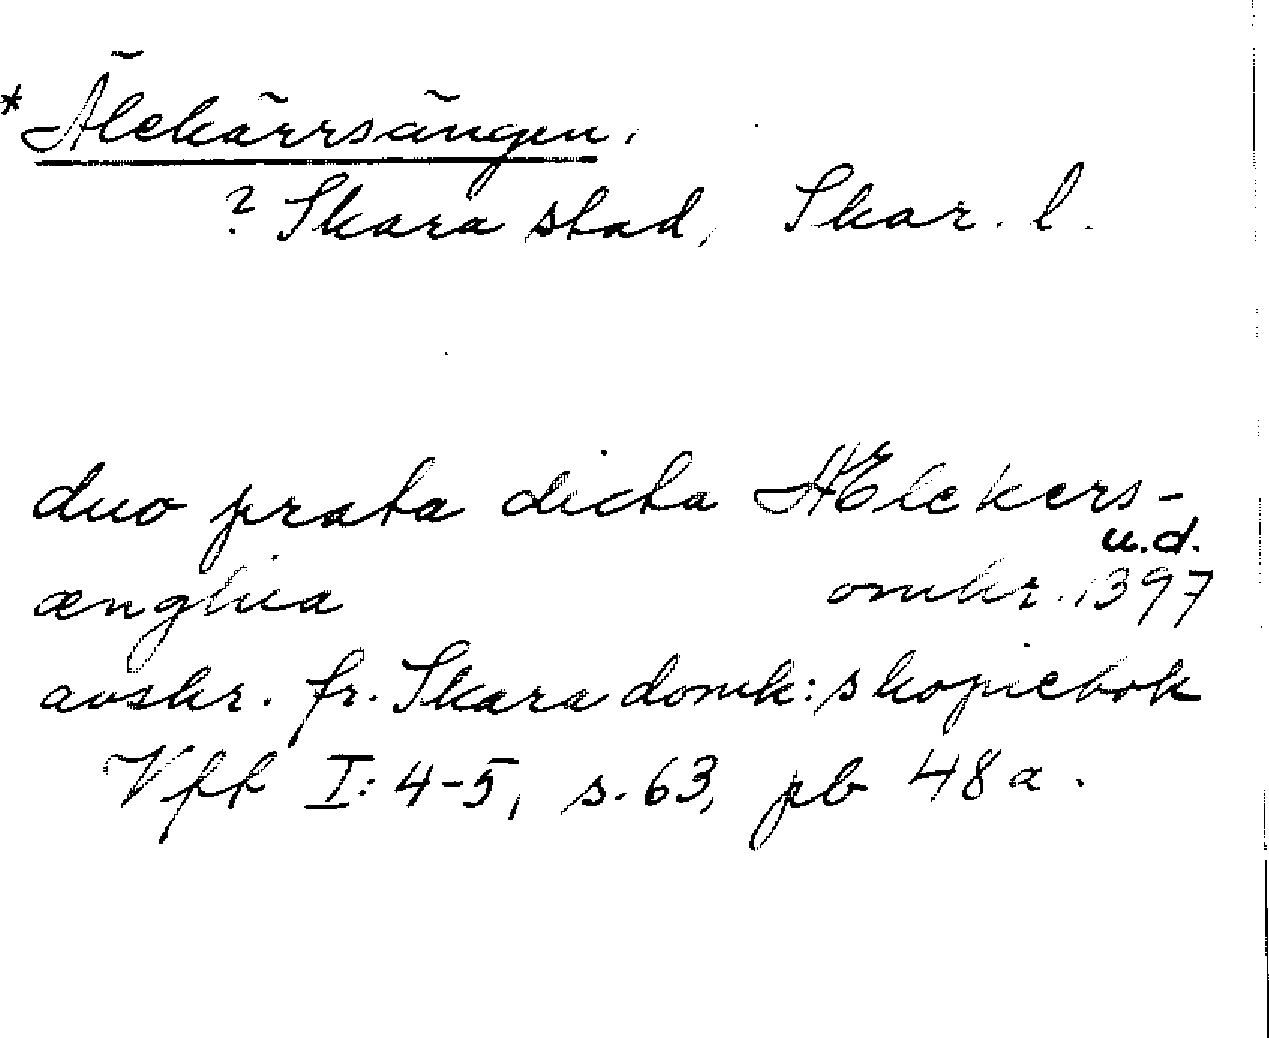 * Älekärrsängen.
? Skara stad, Skar. l.
duo prata dicta Ælekers-
u.d.
ænghia omkr. 1397
avskr. fr. Skara domk:s kopiebok
Vff I: 4-5, s. 63, pb 48a.